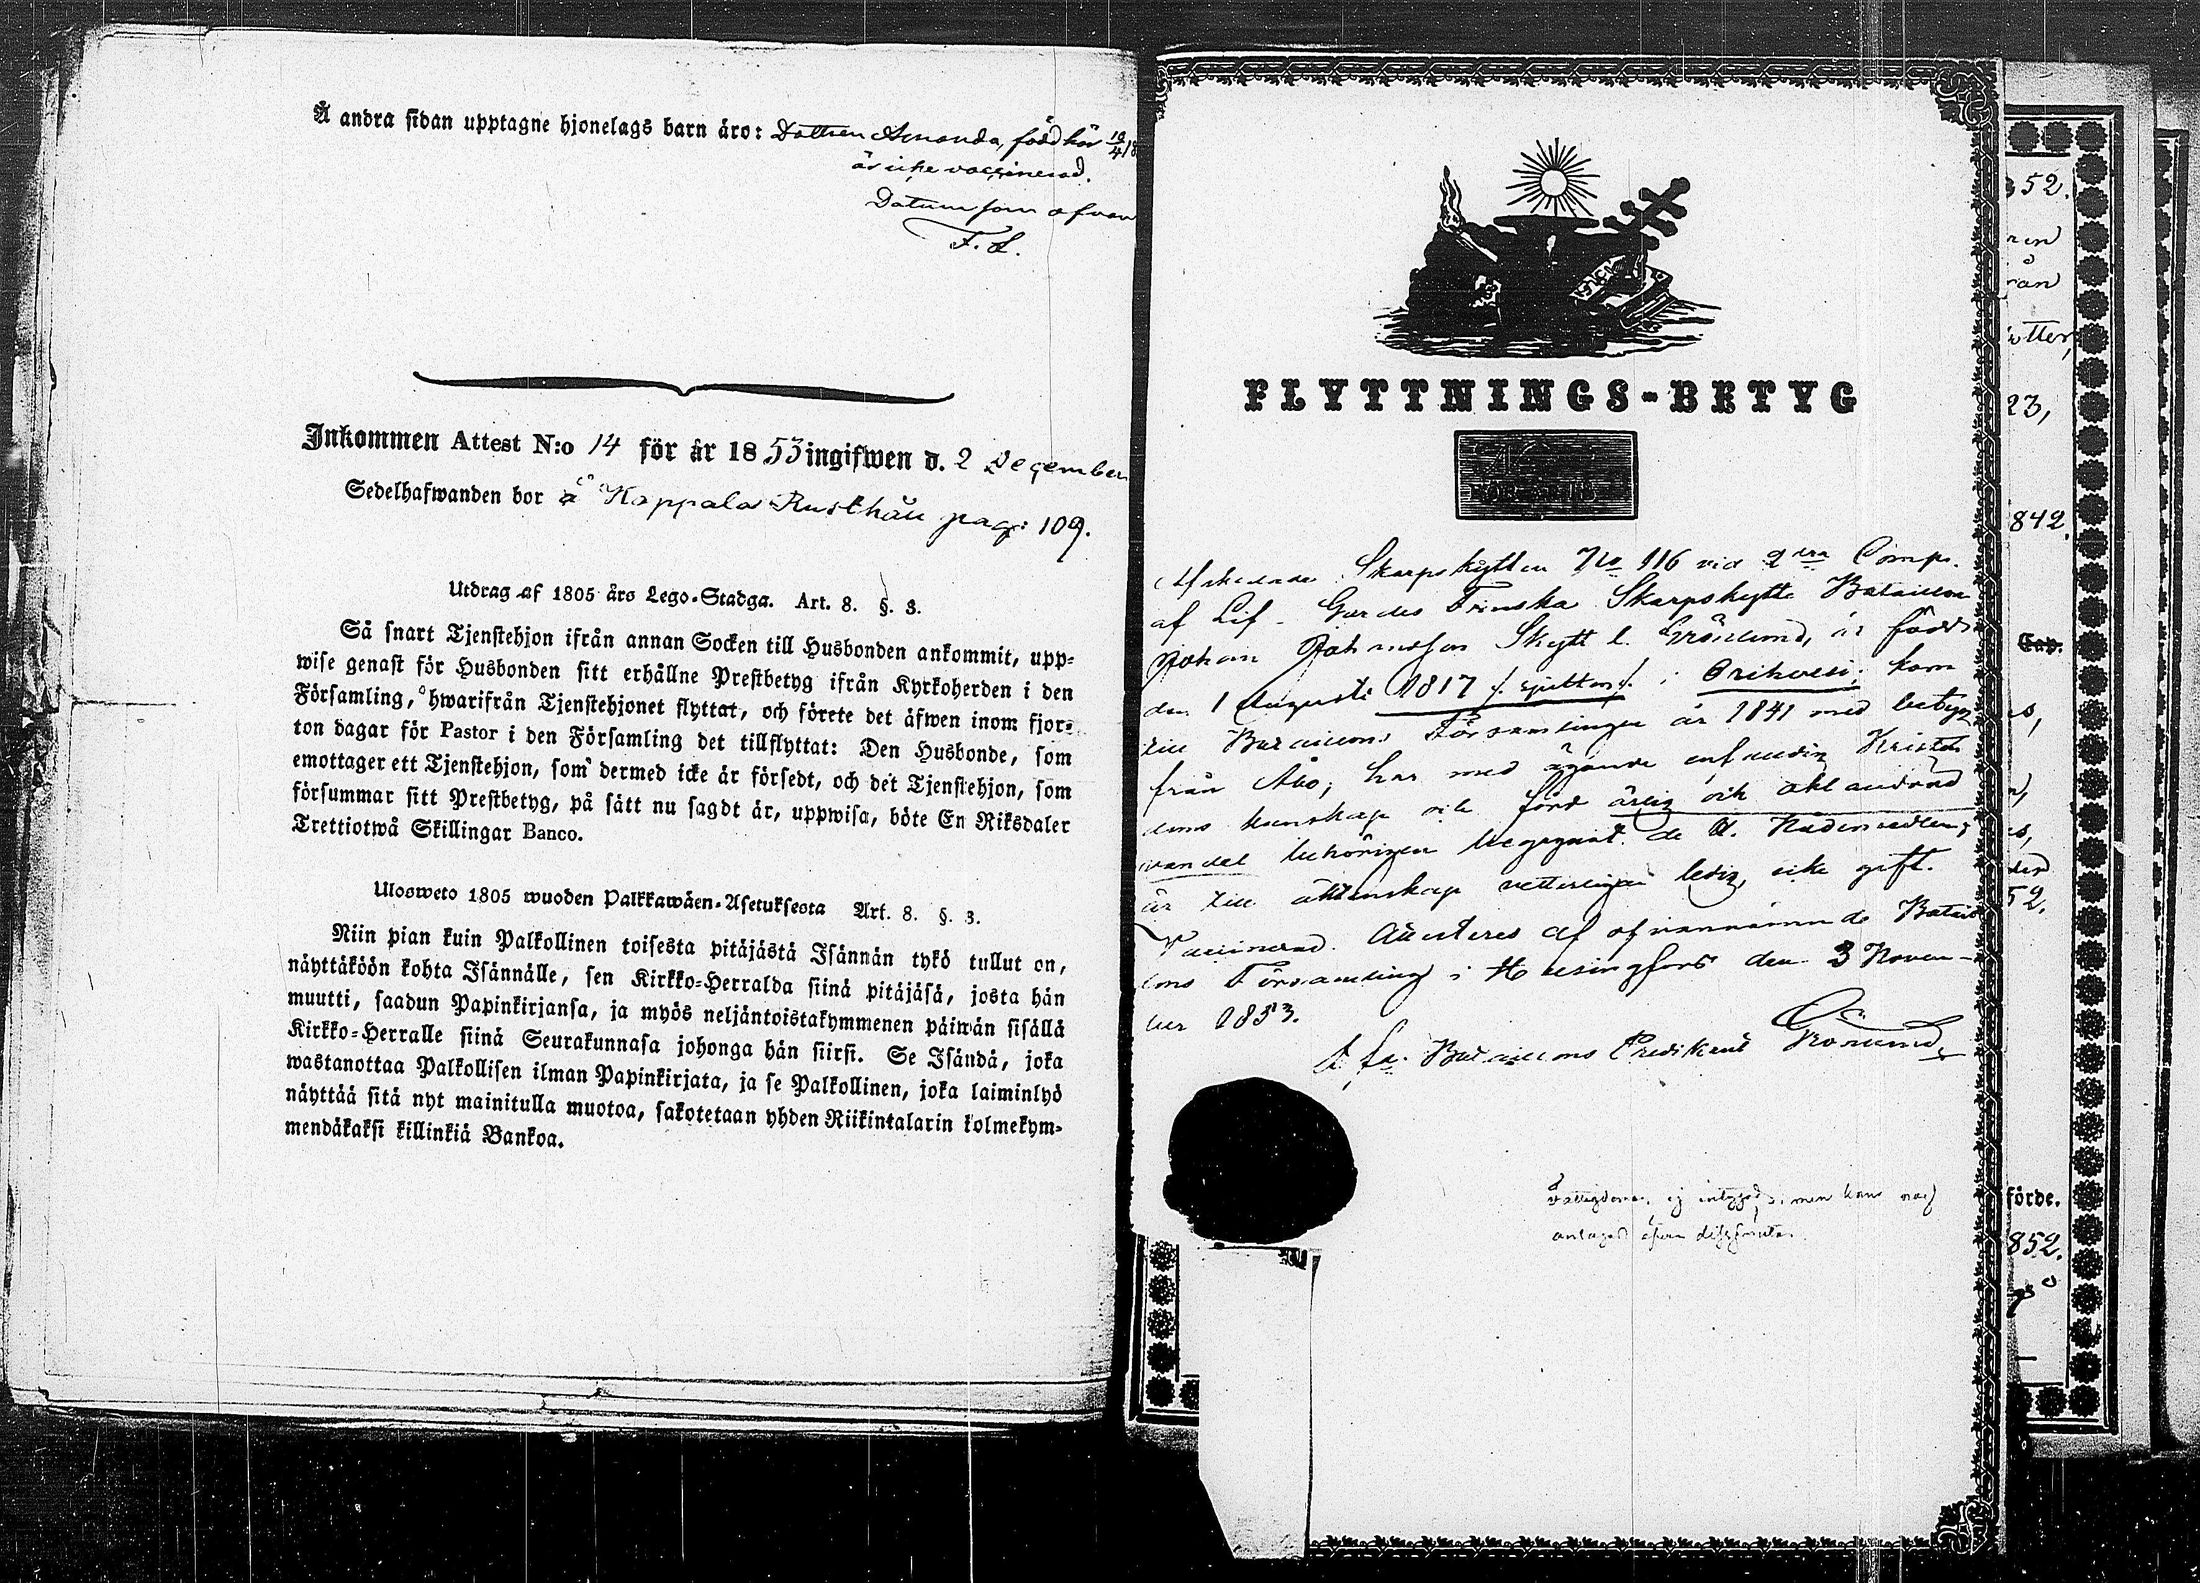 Å andra sidan upptagne hjonelags barn äro: Dottren Amanda, född här 10/4 18
är icke vaccinerad.
Datum som ofvan
F. L.
Inkommen Attest N:o 14 för år 1853 ingifwen d. 2 December
Sedelhafwanden bor å Kappala Rusthåll pag: 109.
Utdrag af 1805 års Lego-Stadga. Art. 8. §. 3.
Så snart Tjenstehjon ifrån annan Socken till Husbonden ankommit, upp-
wise genast för Husbonden sitt erhållne Prestbetyg ifrån Kyrkoherden i den
Församling, hwarifrån Tjenstehjonet flyttat, och förete det äfwen inom fjor-
ton dagar för Pastor i den Församling det tillflyttat: Den Husbonde, som
emottager ett Tjenstehjon, som dermed icke är försedt, och det Tjenstehjon, som
försummar sitt Prestbetyg, på sätt nu sagdt är, uppwisa, böte En Riksdaler
Trettiotwå Skillingar Banco.
Ulosweto 1805 wuoden Palkkawäen-Asetuksesta Art. 8. §. 3.
Niin pian kuin Palkollinen toisesta pitäjästä Isännän tykö tullut on,
näyttäköön kohta Isännälle, sen Kirkko-Herralda siinä pitäjäsä, josta hän
muutti, saadun Papinkirjansa, ja myös neljäntoistakymmenen päiwän sisällä
Kirkko-Herralle siinä Seurakunnasa johonga hän siirsi. Se Isändä, joka
wastanottaa Palkollisen ilman Papinkirjata, ja se Palkollinen, joka laiminlyö
näyttää sitä nyt mainitulla muotoa, sakotetaan yhden Riikintalarin kolmekym-
mendäkaksi killinkiä Bankoa.
FLYTTNINGS-BETYG
Afskedade Skarpskytten No 116 vid 2dra Comp.
af Lif-Gardes Finska Skarpskytte Bataillon
Johan Johansson Skytt l. Grönlund, är född
den 1 Augusti 1817 /. sjutton /. i Orihvesi; kom
till Bataillons Församlingen år 1841 med betyg
från Åbo; har med ägande enfaldig Kristen
doms kunskap och förd ärlig och oklandrad
vandel behörigen begagnat de H. Nådemedlen;
är till äktenskap vetterligen ledig, icke gift.
Vaccinerad. Attesteras af ofvannämnde Batail
lons Församling i Helsingfors den 3 Novem-
ber 1853.
Bataillons Predikant Grönlund
ej intygad, men kan
52.
rån
23,
842.
Cap.
52.
förde.
852.